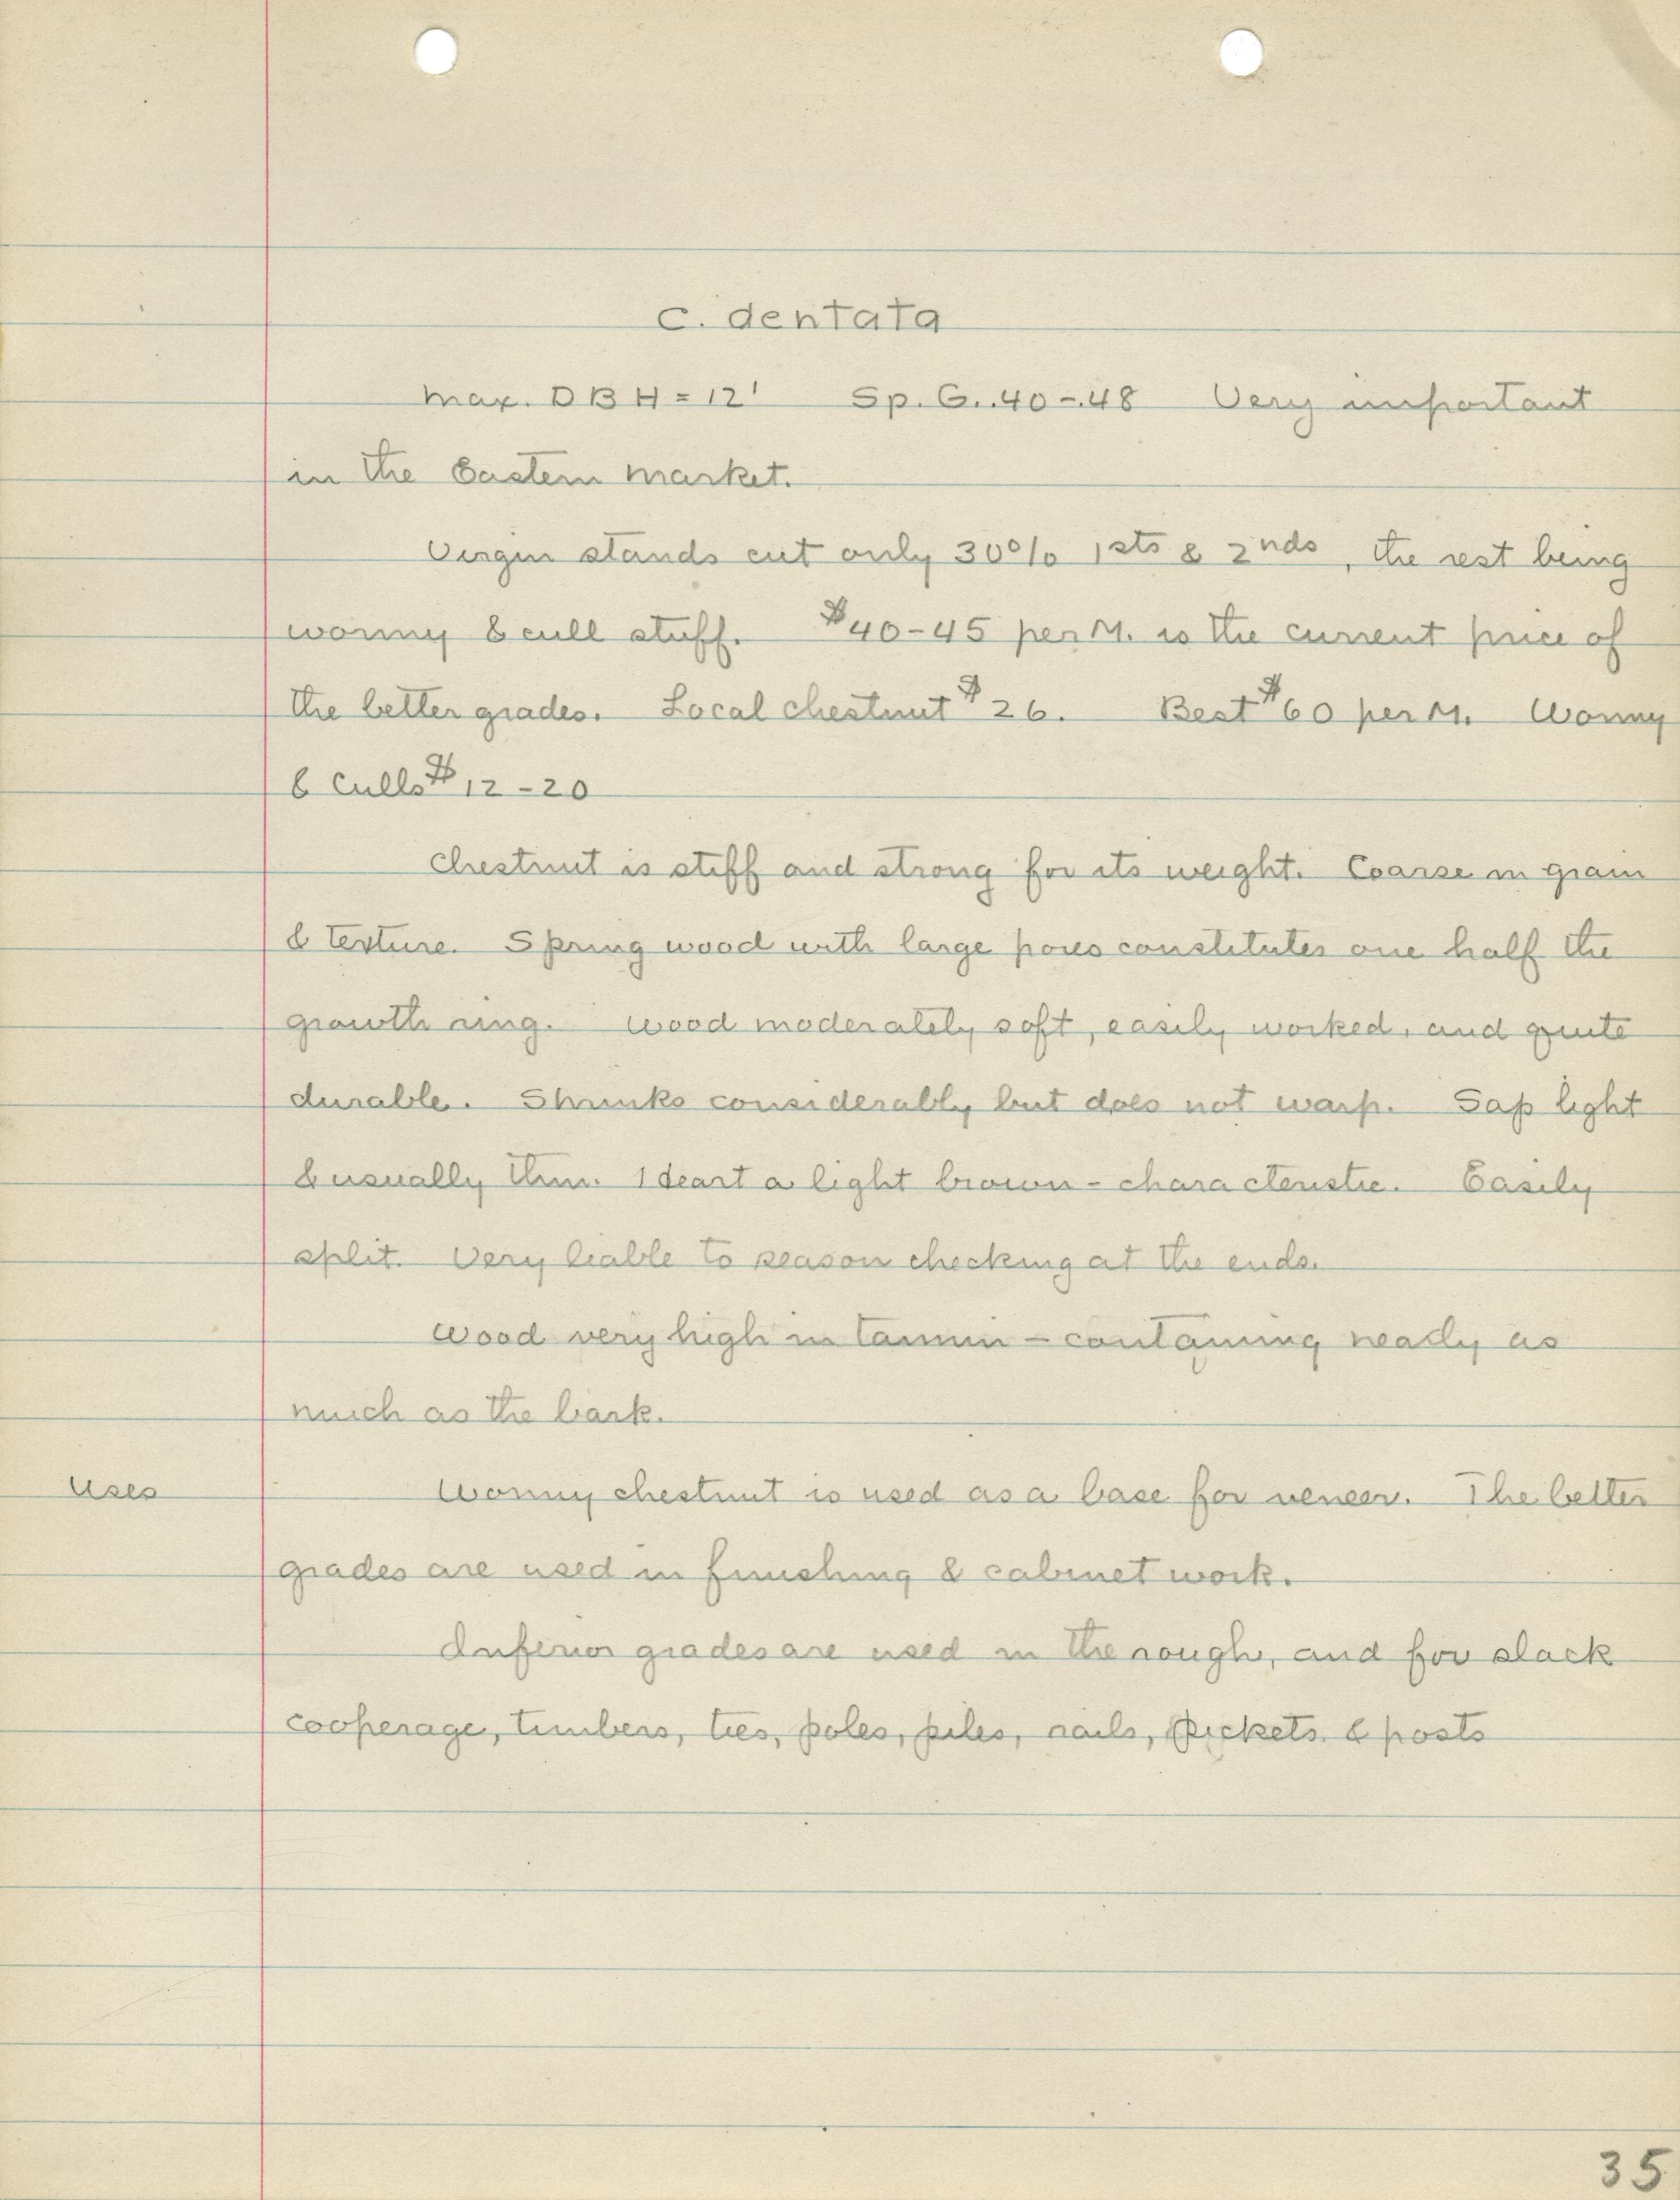 C. dentata
Max. DBH = 12' Sp. G. .40-.48 Very important
in the Eastern market.
Virgin stands cut only 30% 1sts & 2nds, the rest being
wormy & cull stuff. $40-45 per M. is the current price of
the better grades. Local chestnut $26. Best $60 per M. Wormy
& Culls $12-20
Chestnut is stiff and strong for its weight. Coarse in grain
& texture. Spring wood with large pores constitutes one half the
growth ring. Wood moderately soft, easily worked, and quite
durable. Shrinks considerably but does not warp. Sap light
& usually thin. Heart a light brown - characteristic. Easily
split. Very liable to season checking at the ends.
Wood very high in tannin - containing nearly as
much as the bark.
Uses Wormy chestnut is used as a base for veneer. The better
grades are used in finishing & cabinet work.
Inferior grades are used in the rough, and for slack
cooperage, timbers, ties, poles, piles, rails, pickets & posts
35